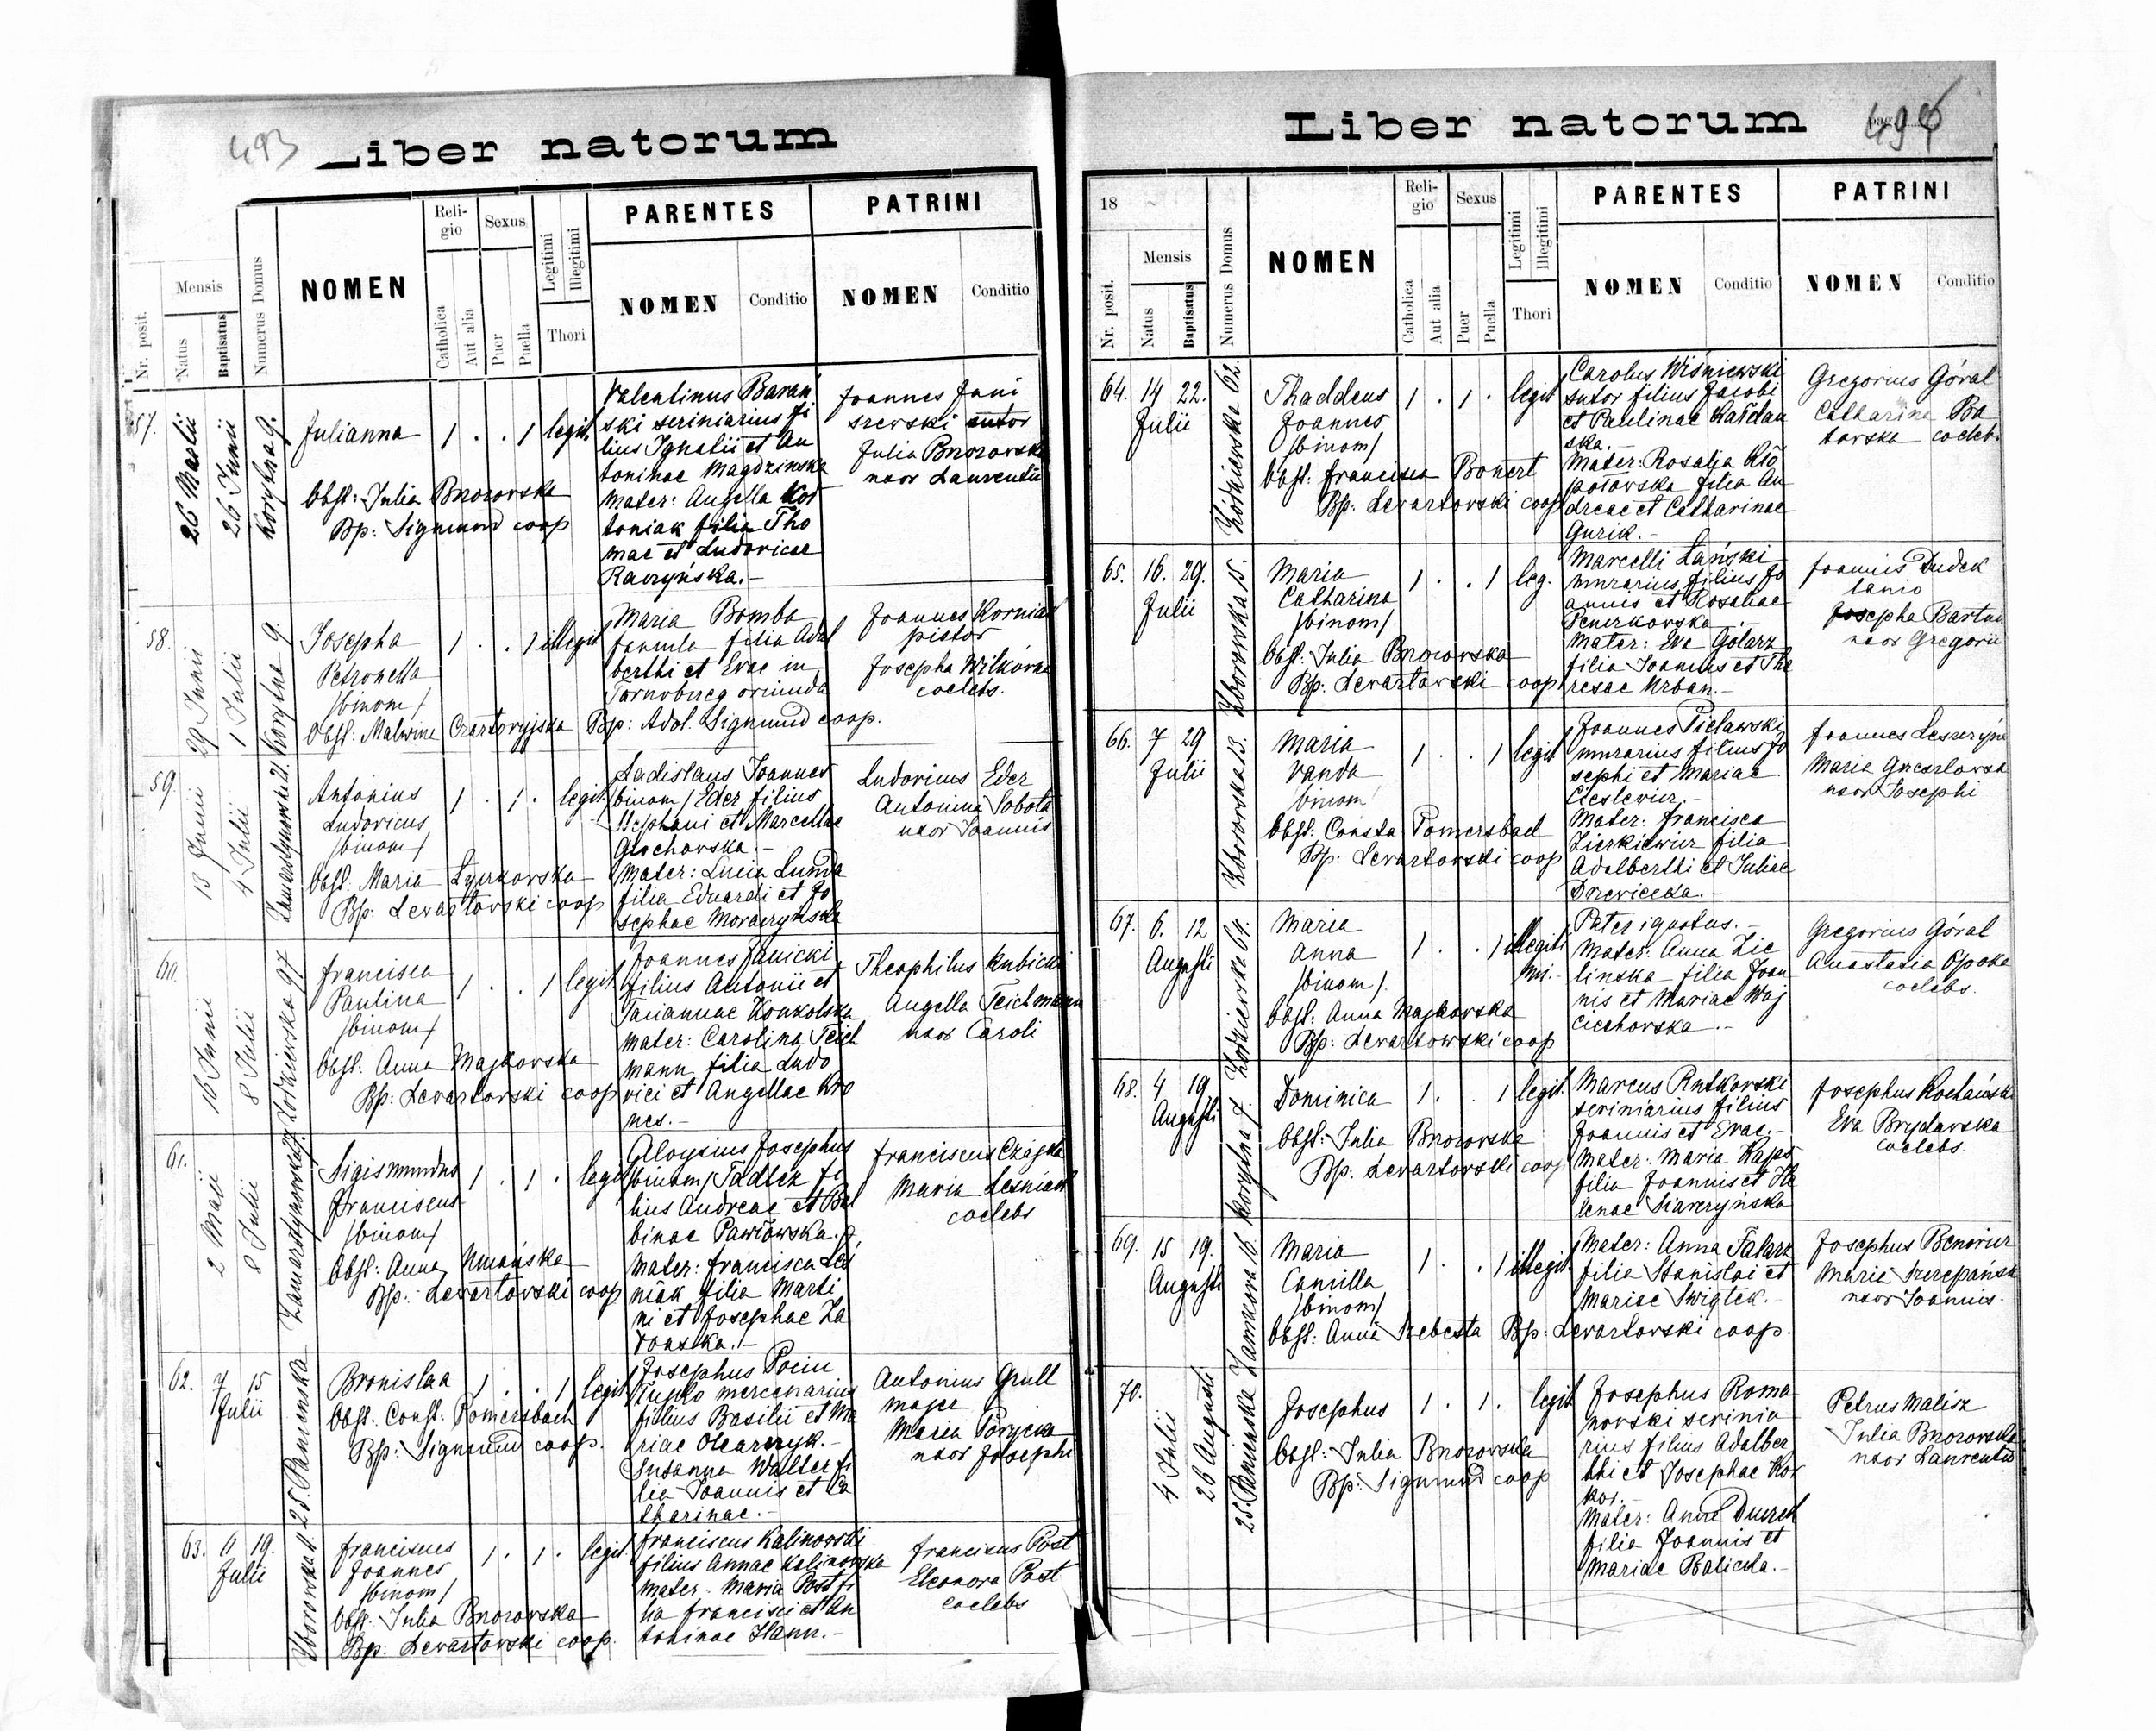 493
Liber natorum
Nr. posit.
Mensis
Natus
Baptisatus
Numerus Domus
NOMEN
Reli-
gio
Catholica
Aut alia
Sexus
Puer
Puella
Legitimi
Illegitimi
Thori
PARENTES
NOMEN
Conditio
PATRINI
NOMEN
Conditio
57.
26 Martii
26 Junii
Korytna 9.
Julianna
1 . . 1 legit.
Obst: Julia Bnorovska
Bp: Sigmund coop
Valentinus Barań
ski scriniarius fi
lius Ignatii et An
toninae Magdzinska
Mater: Angella Kos
toniak filia Tho
mae et Ludovicae
Joannes Juni
szewski sutor
Julia Bnorovska
uxor Laurentii
58.
29 Junii
1 Julii
Korytna 9.
Josepha
Petronella
/binom/
1 . . 1 illegit
Obst: Malwine Czartoryjska Bp: Adol. Sigmund coop.
Maria Bomba
famula filia Adal
berthi et Evae in
Tarnobrzeg oriunda
Joannes Korniak
pistor
Josepha Wilkówna
coelebs.
59.
13 Junii
4 Julii
Zamarstynowska 21.
Antonius
Ludovicus
/binom/
1 . 1 . legit.
Obst. Maria
Bp: Levartovski coop
Ladislaus Joannes
binom/ Eder filius
Stephani et Marcellae
Grochovska.-
Mater: Lucia Lunda
filia Eduardi et Jo
sephae
Ludovicus Eder
Antonina Sobota
uxor Joannis
60.
16 Junii
8 Julii
Zołkiewska 97
Francisca
Paulina
/binom/
1 . . 1 legit.
Obst: Anna Majkovska
Bp: Levartovski coop
Joannes Janicki
filius Antonii et
Mariannae Konkolska
Mater: Carolina Teich
mann filia Ludo
vici et Angellae Kro
nes.-
Theophilus Kubicki
Angella Teichmann
uxor Caroli
61.
2 Maii
8 Julii
Zamarstynowska
Sigismundus
Franciscus
/binom/
1 . 1 . legit
Obst: Anna Umańska
Bp: Levartovski coop
Aloysius Josephus
/binom/ Tadlez fi
lius Andreae et Bal
binae Pawłowska.
Mater: Francisca Leś
niak filia Marti
ni et Josephae Za
Franciscus Czajka
Maria Leśniak
coelebs
62.
7 15
Julii
25. Panieńska
Bronislaa
1 . . 1 legit
Obst. Const: Pomersbach
Bp: Sigmund coop.
Josephus Pociu
mercenarius
filius Basilii et Ma
riae Olearczyk.-
Susanna Walter fi
lia Joannis et Ca
tharinae.-
Antonius Grull
majer
Maria
uxor Josephi
63. 11 19.
Julii
Zborowska 11.
Franciscus
Joannes
/binom/
1 . 1 . legit
Obst. Julia Bnorovska
Bp: Levartovski coop.
Franciscus Kalinovski
filius Annae Kalinovska
Mater: Maria Post fi
lia Francisci et An
toninae Hann.-
Franciscus Post
Eleonora Post
coelebs
Liber natorum
pag.
18
Nr. posit.
Mensis
Natus
Baptisatus
Numerus Domus
NOMEN
Reli-
gio
Catholica
Aut alia
Sexus
Puer
Puella
Legitimi
Illegitimi
Thori
PARENTES
NOMEN
Conditio
PATRINI
NOMEN
Conditio
64. 14 22.
Julii
Żółkiewska 62.
Thaddeus
Joannes
/binom/
1 . 1 . legit
Obst: Francisca Bonert
Bp: Levartovski coop
Carolus Wiśniewski
sutor filius Jacobi
et Paulinae Kałdau
ska.-
Mater: Rosalia Kło
potovska filia An
dreae et Catharinae
Gurik.-
Gregorius Góral
Catharina Ba
tovska coeleb.
65. 16. 29.
Julii
Zborowska 15.
Maria
Catharina
/binom/
1 . . 1 leg.
Obst: Julia Bnorovska
Bp. Levartovski coop
Marcelli Łański
murarius filius Jo
annis et Rosaliae
Mater: Eva Golarz
filia Joannis et The
resae Urban.-
Joannis Dudek
lanio
Josepha
uxor Gregorii
66. 7 29
Julii
Zborowska 13.
Maria
Vanda
/binom/
1 . . 1 legit
Obst: Consta Pomersbach
Bp: Levartovski coop
Joannes Pielawski
murarius filius Jo
sephi et Mariae
Cieslevicz.-
Mater: Francisca
Zierkiewicz filia
Adalberthi et Juliae
Drzevicka.-
Joannes
Maria
uxor Josephi
67. 6. 12
Augusti
Żołkiewska 64.
Maria
Anna
/binom/.
1 . . 1 illegiti
mi.-
Obst: Anna Majkovska
Bp: Levartowski coop
Pater ignotus.-
Mater: Anna Zie
linska filia Joan
nis et Mariae Woj
ciechovska.-
Gregorius Góral
Anastasia Opoka
coelebs.
68. 4 19.
Augusti
Korytna 7.
Dominica
1 . . 1 legit.
Obst: Julia Bnorovska
Bp. Levartovski coop
Marcus Rutkovski
scriniarius filius
Joannis et Evae.-
Mater: Maria Kaps
filia Joannis et He
lenae
Josephus
Eva Brydavska
coelebs.
69. 15 19.
Augusti
Zamkova 16.
Maria
Camilla
/binom/
1 . . 1 illegit.
Obst: Anna Szebesta Bp: Levartovski coop.
Mater: Anna Falarz
filia Stanislai et
Mariae Swiątek.-
Josephus Benovicz
Maria Szczepańska
uxor Joannis.
70.
4 Julii
26 Augusti
25. Panieńska
Josephus
1 . 1 . legit
Obst: Julia Bnorovska
Bp: Sigmund coop
Josephus Roma
novski scrinia
rius filius Adalber
thi et Josephae Kor
kos.-
Mater: Anna
filia Joannis et
Mariae Balicka.-
Petrus Malisz
Julia Bnorovska
uxor Laurentii